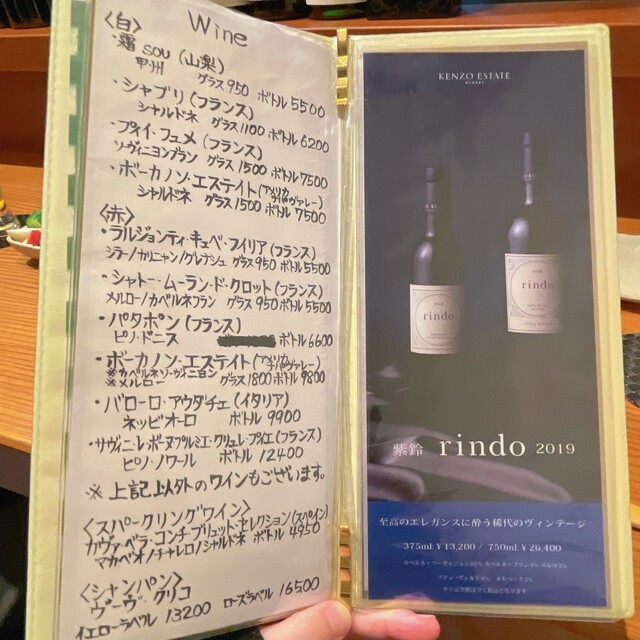 〈白〉 Wine
・霜 SOU (山梨)
甲州 グラス 950 ボトル 5500
・シャブリ (フランス)
シャルドネ グラス 1100 ボトル 6200
・プイイ・フュメ (フランス)
ソヴィニヨンブラン グラス 1500 ボトル 7500
・ボーカノン・エステイト (アメリカ ナパヴァレー)
シャルドネ グラス 1500 ボトル 7500
〈赤〉
・ラルジョンティ・キュベ・フィリア (フランス)
シラー/カリニャン/グレナッシュ グラス 950 ボトル 5500
・シャトー・ムーラン・ド・クロット (フランス)
メルロー/カベルネフラン グラス 950 ボトル 5500
・パタポン (フランス)
ピノ・ドニス ボトル 6600
・ボーカノン・エステイト (アメリカ ナパヴァレー)
※カベルネ・ソーヴィニヨン
※メルロー グラス 1800 ボトル 9800
・バローロ・アウダチェ (イタリア)
ネッビオーロ ボトル 9900
・サヴィニ・レ・ボーヌプルミエ・クリュ・レ・プイエ (フランス)
ピノ・ノワール ボトル 12400
※上記以外のワインもございます。
〈スパークリングワイン〉
カヴァ・ベラ・コンチ ブリュット・セレクション (スペイン)
マカベオ/チャレロ/シャルドネ ボトル 4950
〈シャンパン〉
ヴーヴ・クリコ
イエローラベル 13200 ローズラベル 16500
KENZO ESTATE
WINERY
rindo
rindo
紫鈴 rindo 2019
至高のエレガンスに酔う稀代のヴィンテージ
375ml: ¥13,200 / 750ml: ¥26,400